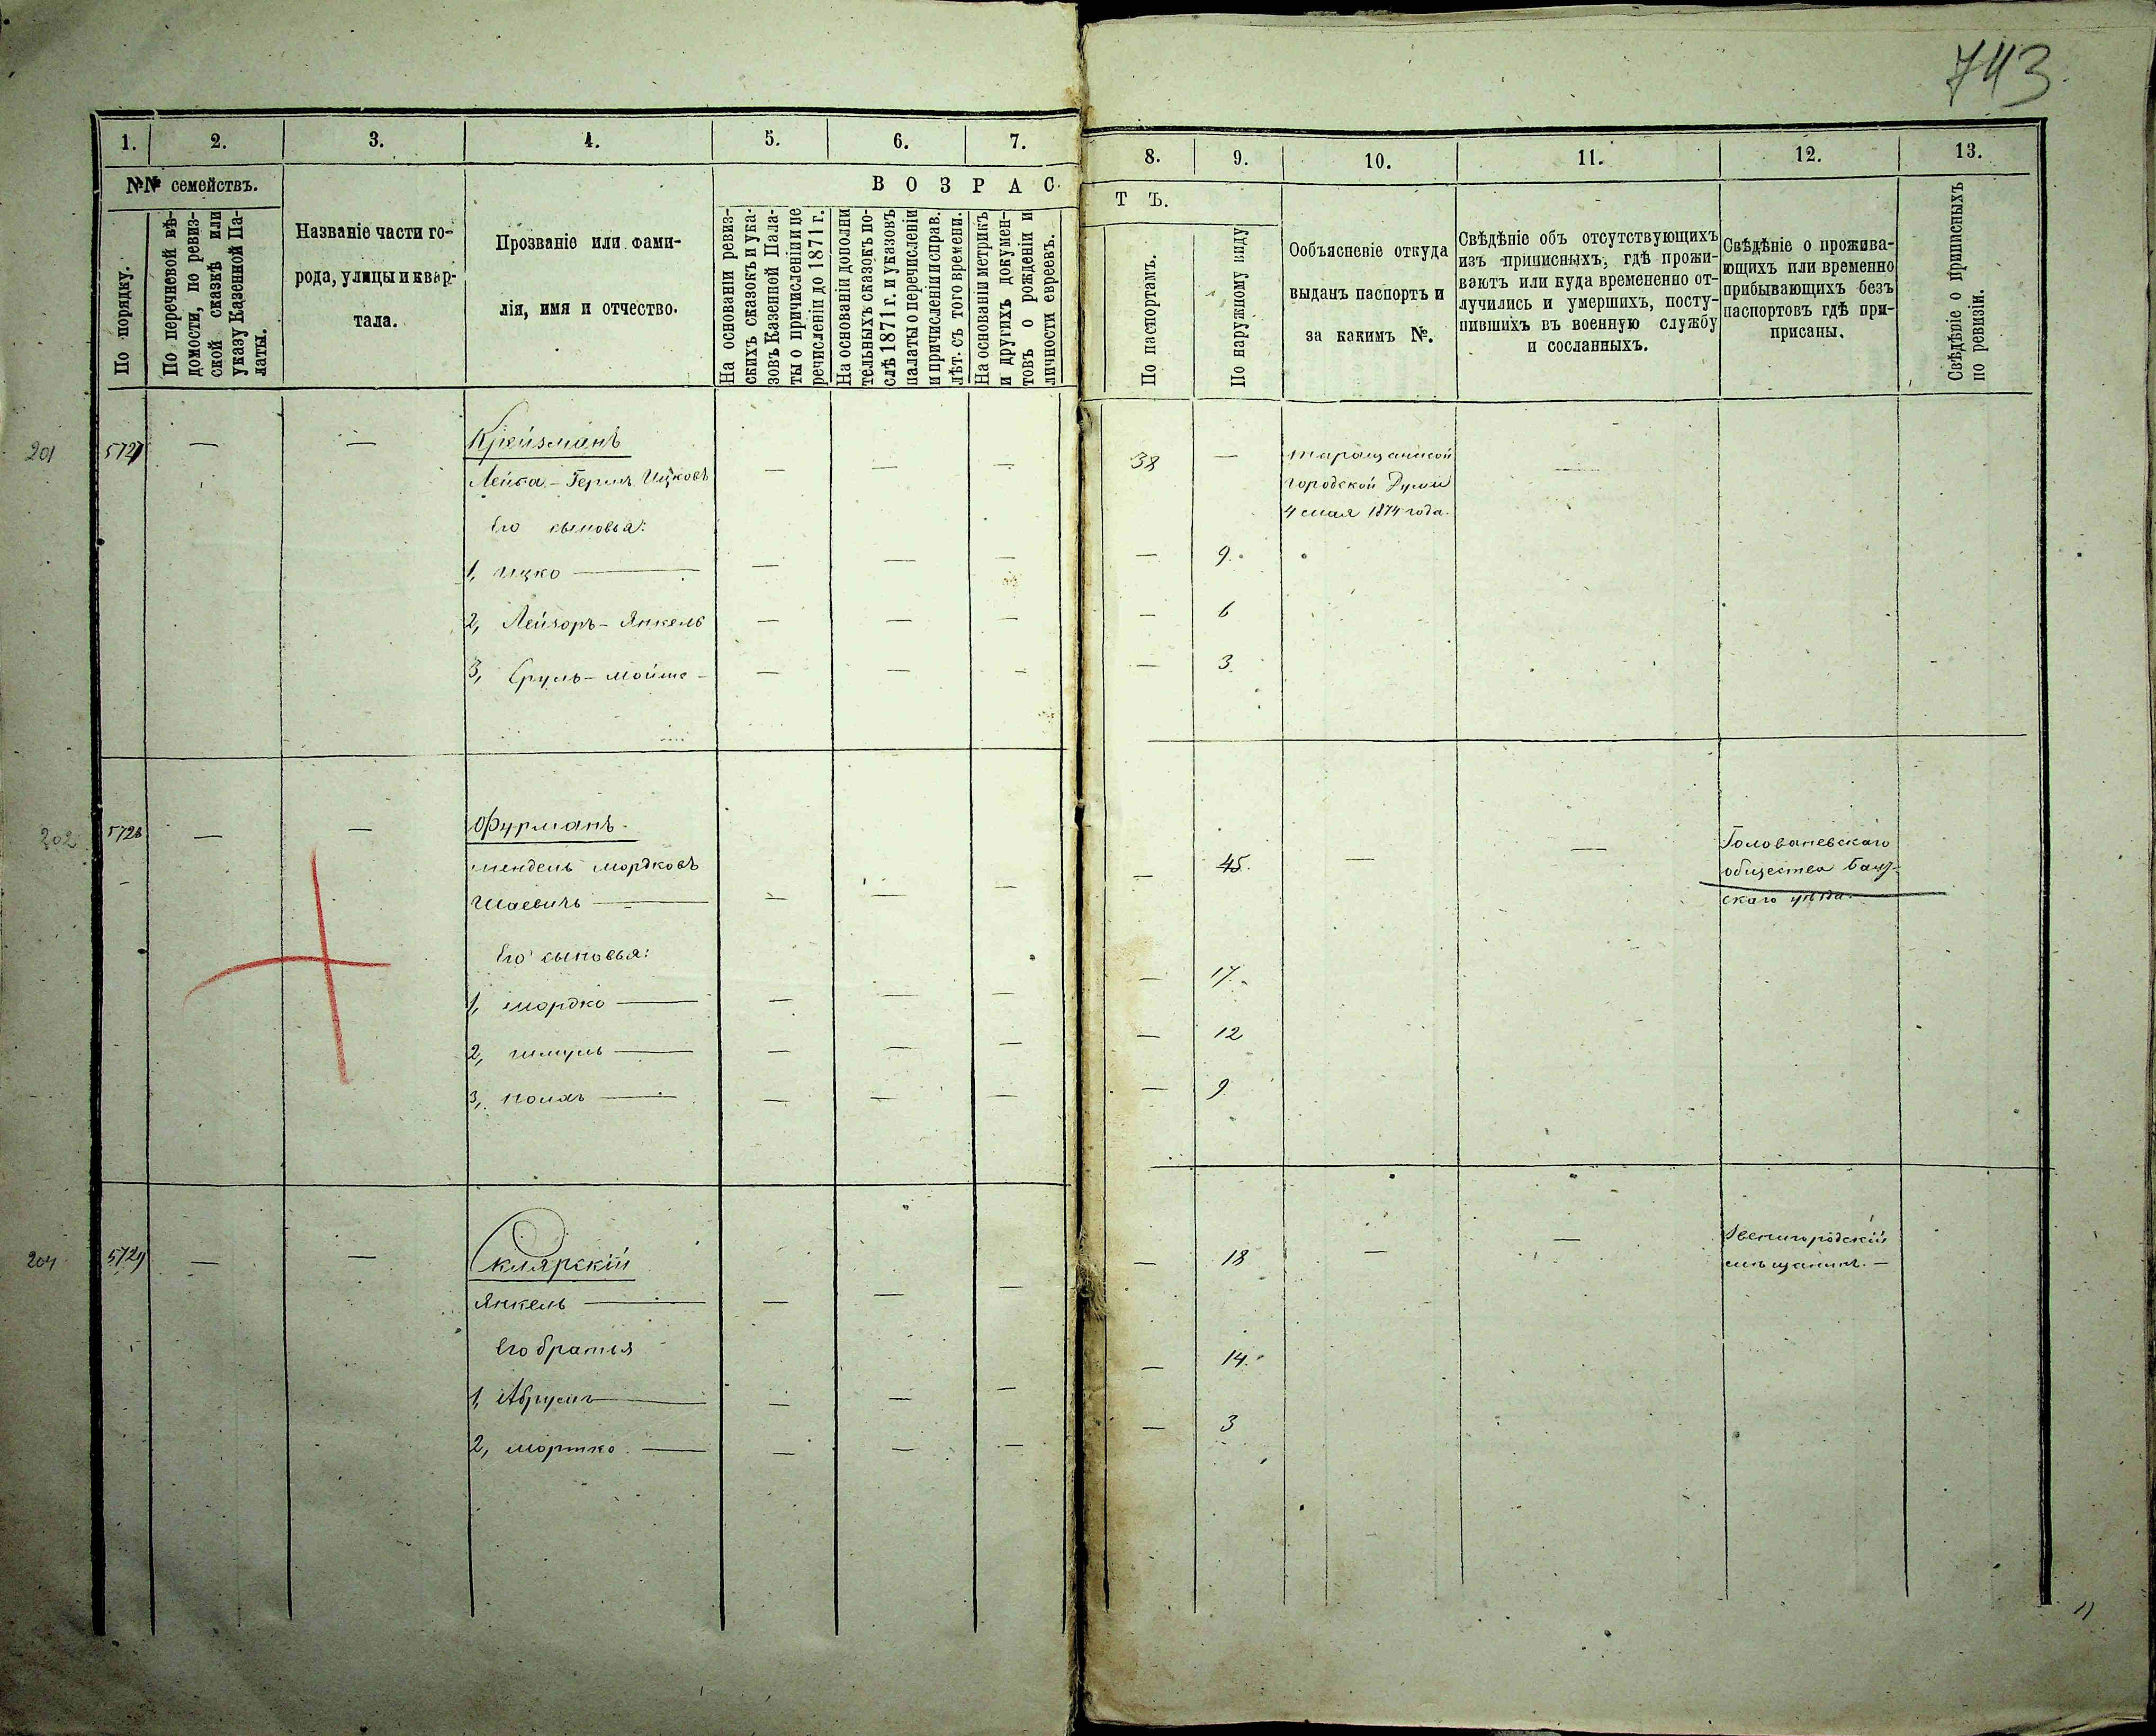 743
1. 2. 3. 4. 5. 6. 7. 8. 9. 10. 11. 12. 13.
№№ семействъ.
По порядку.
По перечневой вѣ-
домости, по ревиз-
ской сказкѣ или
указу Казенной Па-
латы.
Названіе части го-
рода, улицы и квар-
тала.
Прозваніе или фами-
лія, имя и отчество.
ВОЗРАСТЪ.
На основаніи ревиз-
скихъ сказокъ и ука-
зовъ Казенной Пала-
ты о причисленіи и пе
речисленіи до 1871 г.
На основаніи дополни
тельныхъ сказокъ по-
слѣ 1871 г. и указовъ
палаты о перечисленіи
и причисленіи и справ.
лѣт. съ того времени.
На основаніи метрикъ
и другихъ докумен-
товъ о рожденіи и
личности евреевъ.
По паспортамъ.
По наружному виду
Ообъясненіе откуда
выданъ паспортъ и
за какимъ №.
Свѣдѣніе объ отсутствующихъ
изъ приписныхъ, гдѣ прожи-
ваютъ или куда временно от-
лучились и умершихъ, посту-
пившихъ въ военную службу
и сосланныхъ.
Свѣдѣніе о прожива-
ющихъ или временно
прибывающихъ безъ
паспортовъ гдѣ при-
приcаны.
Свѣдѣніе о приписныхъ
по ревизіи.
201 5727 — — Крейзманъ
Лейба-Гершъ Ицковъ — — — 38 — —
Таращанской
городской Думы
4 мая 1874 года.
Его сыновья:
1, Ицко — — — — — 9.
2, Лейзоръ-Янкель — — — — 6
3, Сруль-Мойше — — — — 3
202 5728 — — Фурманъ.
Мендель Мордковъ
Шаевичъ — — — — — 45. — —
Голованевскаго
общества Балт-
скаго уѣзда.
Его сыновья:
1, Мордко — — — — — 17.
2, Шмуль — — — — — 12
3, — — — — — 9
204 5729 — — Склярскій
Янкель — — — — — 18 — —
Звенигородскій
мѣщанинъ. —
Его братья
1, Абрумъ — — — — — 14.
2, Мортко — — — — — 3